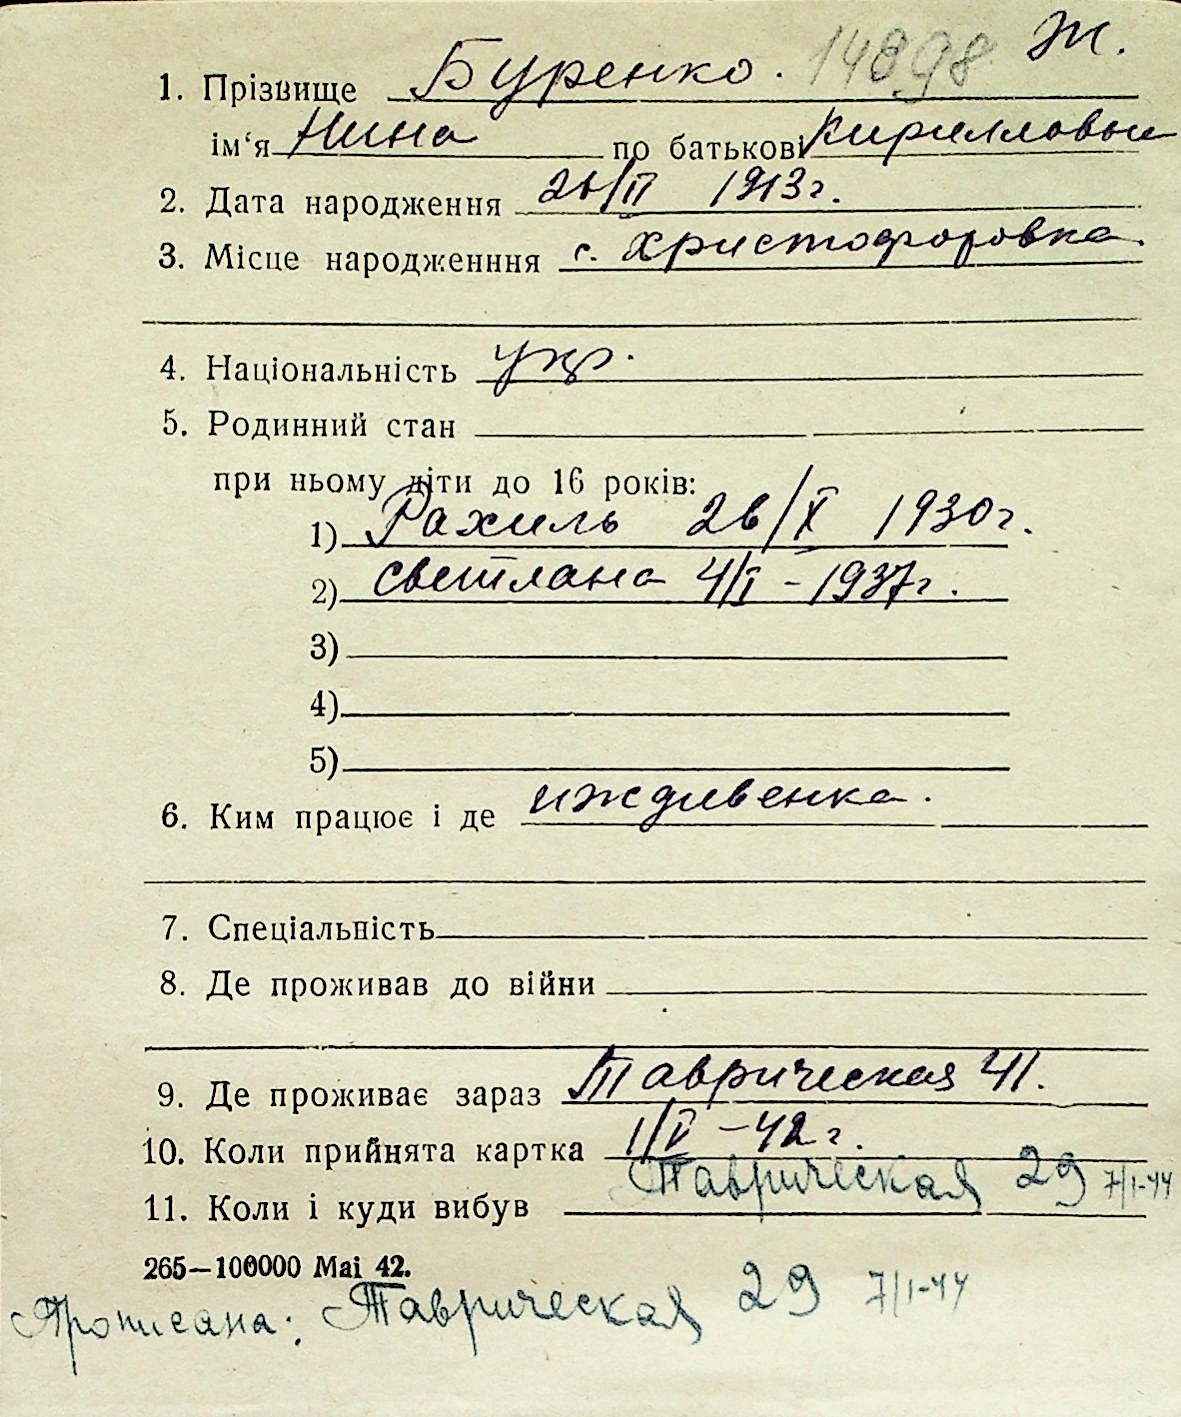 1. Прізвище Буренко. 14898 Ж.
ім‘я Нина по батькові Кирилловы
2. Дата народження 26/II 1913г.
3. Місце народженння с. Христофоровка.
4. Національність укр.
5. Родинний стан
при ньому діти до 16 років:
1) Рахиль 26/X 1930г.
2) Светлана 4/I - 1937г.
3)
4)
5)
6. Ким працює і де иждивенка.
7. Спеціальність
8. Де проживав до війни
9. Де проживає зараз Таврическая 41.
10. Коли прийнята картка 1/V - 42г.
11. Коли і куди вибув Таврическая 29 7/I-44
265—100000 Mai 42.
Прописана: Таврическая 29 7/I-44